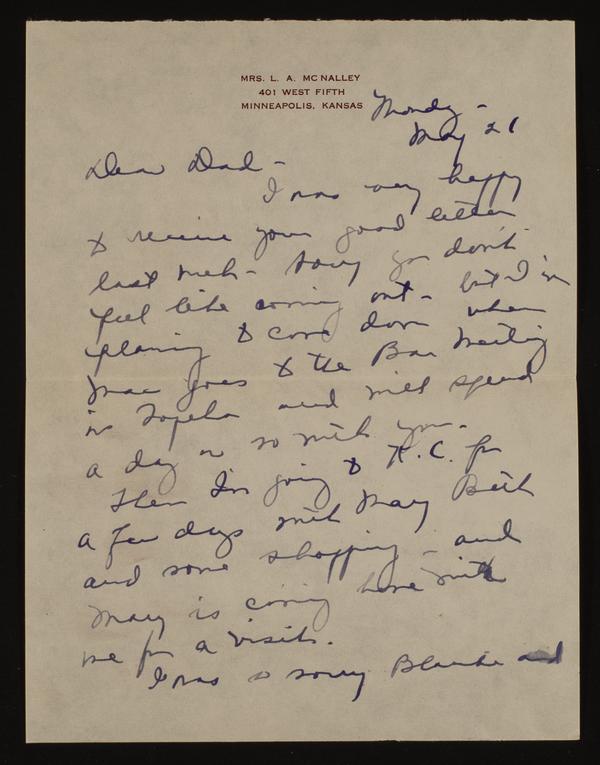 MRS. L. A. MCNALLEY
401 WEST FIFTH
MINNEAPOLIS, KANSAS
Monday -
May 21
Dear Dad -
I was very happy
to receive your good letter
last week - Sorry you don't
feel like coming out - but I'm
planning to come down when
Mac goes to the Bar Meeting
in Topeka and will spend
a day or so with you.
Then I'm going to K.C. for
a few days with Mary Beth
and some shopping - and
Mary is coming home with
me for a visit.
I was so sorry Blanche and